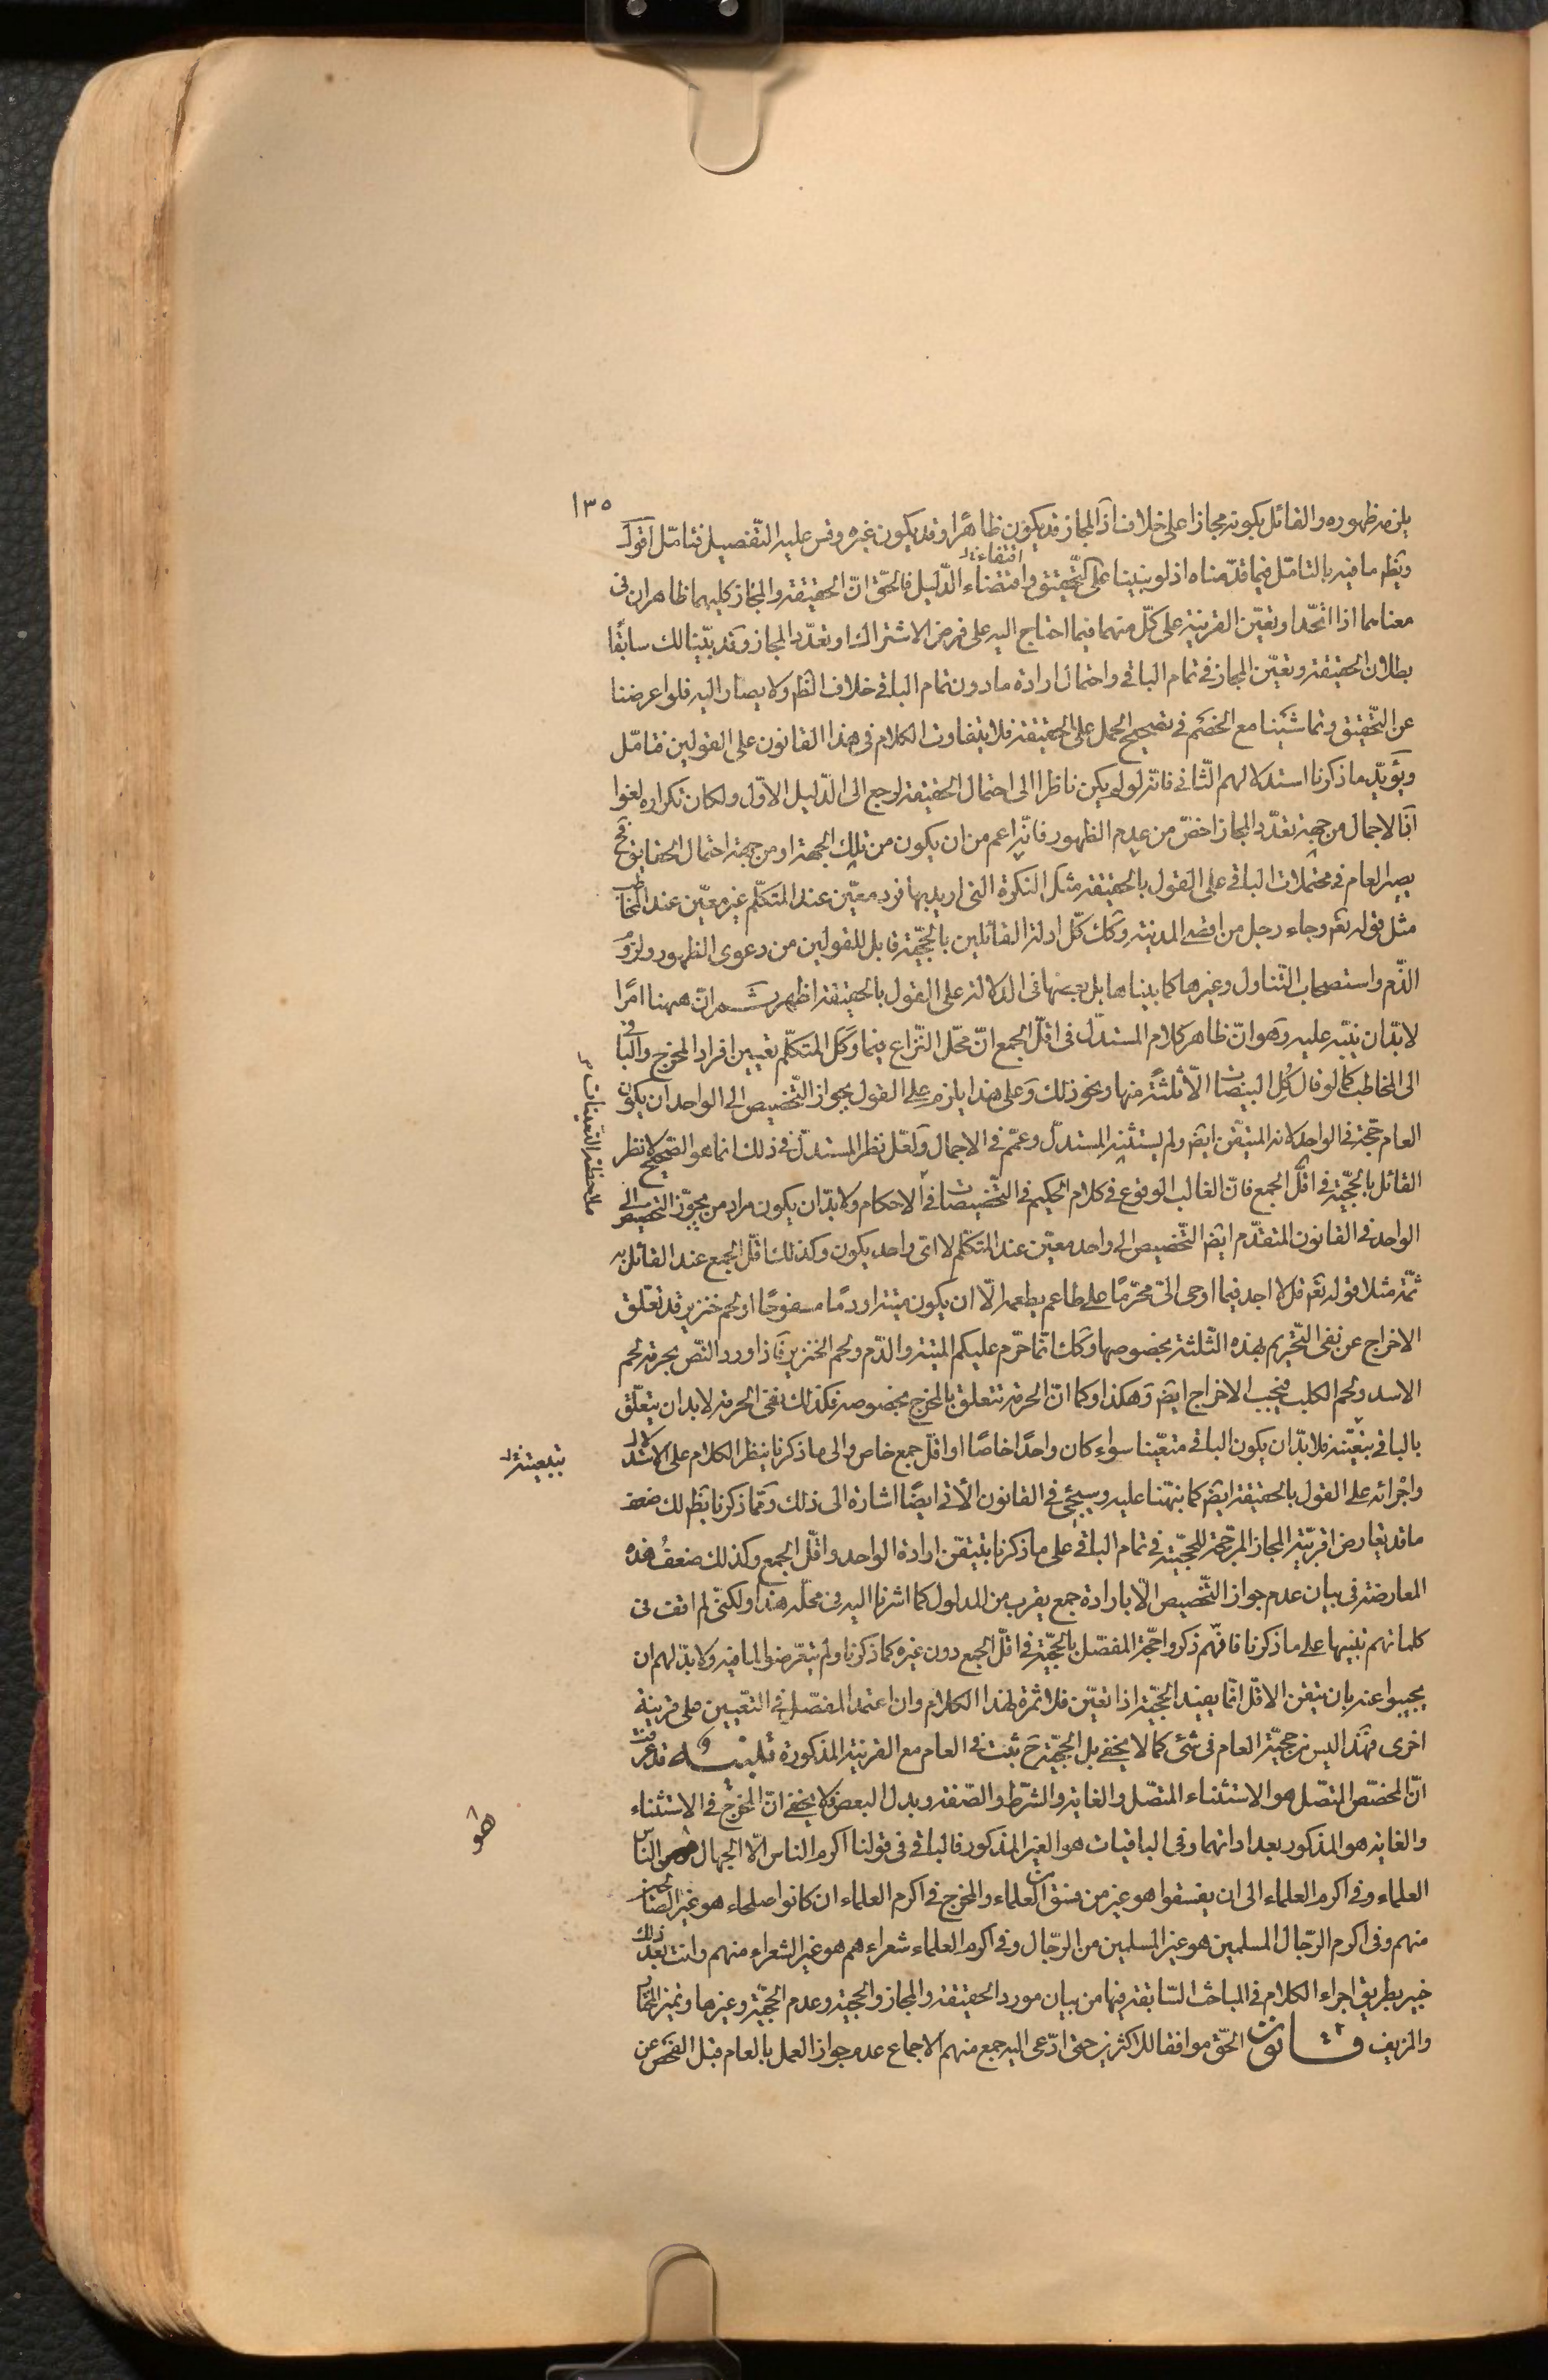 ١٣٥
يلزمه ظهوره والقائل بكونه مجازا على خلافه اذ المجاز قد يكون ظاهرا وقد يكون غيره وقس عليه التّفصيل فتامّل اقول
ويظهر ما فيه بالتامّل فيما قدّمناه اذ لو بنينا على التّحقيق واقتضاء الدّليل فالحقّ انّ الحقيقة والمجاز كليهما ظاهران فى
معناهما اذا اتّحدا وتعيّن القرينة على كلّ منهما فيما احتاج اليه على فرض الاشتراك او تعدّد المجاز وقد بيّنا لك سابقًا
بطلان الحقيقة وتعيّن المجاز فى تمام الباقى واحتمال ارادة مادون تمام الباقى خلاف الظم ولا يصار اليه فلو اعرضنا
عن التّحقيق وتماشينا مع الخصم فى تصحيح الحمل على الحقيقة فلا يتفاوت الكلام فى هذا القانون على القولين فتامّل
ويؤيّد ما ذكرنا استدلالهم الثّانى فانّه لو لم يكن ناظرا الى احتمال الحقيقة لرجع الى الدّليل الاوّل ولكان تكراره لغوا
اذ الاجمال من جهة تعدّد المجاز اخصّ من عدم الظهور فانّه اعم من ان يكون من تلك الجهة او من جهة احتمال الحقايق فح
يصير العام فى محتملات الباقى على القول بالحقيقة مثل النكرة التى اريد بها فرد معيّن عند المتكلّم غير معيّن عند المخاطب
مثل قوله تعم وجاء رجل من اقصى المدينة وكك كلّ ادلة القائلين بالحجّية قابل للقولين من دعوى الظهور ولزوم
الذّم واستصحاب التّناول وغيرها كما بيناها بل بعضها فى الدلالة على القول بالحقيقة اظهر ثـم انّ ههنا امرًا
لا بدّ ان ينبّه عليه وهو انّ ظاهر كلام المستدلّ فى اقلّ الجمع انّ محلّ النّزاع فيما وكل المتكلّم تعيين افراد المخرج والباقى
الى المخاطب كما لو قال كُل البيضات الّا ثلثةً منها ونحو ذلك وعلى هذا يلزم على القول بجواز التّخصيص الى الواحد ان يكون
العام حجّة فى الواحد لانه المتيقّن ايضم ولم يستثنه المستدلّ وعمّم فى الاجمال ولعلّ نظر المستدلّ فى ذلك انما هو الصّحيح لا نظر
القائل بالحجّية فى اقلّ الجمع فانّ الغالب الوقوع فى كلام الحكيم فى التّخصيصات فى الاحكام ولا بدّ ان يكون مراد من يجوّز التخصيص الى
الواحد فى القانون المتقدّم ايضم التّخصيص الى واحد معيّن عند المتكلّم لا اى واحد يكون وكذلك اقلّ الجمع عند القائل به
ثمّة مثلا قوله تعم قل لا اجد فيما اوحى الىّ محرّمًا على طاعم يطعمه الّا ان يكون ميتة او دمًا مسفوحًا او لحم خنزير قد تعلّق
الاخراج عن نفى التّحريم بهذه الثّلثة بخصوصها وكك انّما حرّم عليكم الميتة والدّم ولحم الخنزير فاذا ورد النّص بحرمة لحم
الاسد ولحم الكلب فيجب الاخراج ايضم وهكذا وكما انّ الحرمة تتعلق بالمخرج بخصوصه فكذلك نفى الحرمة لا بد ان يتعلّق
بالباقى فلا بدّ ان يكون الباقى متعيّنا سواء كان واحدًا خاصًا او اقل جمع خاص والى ما ذكرنا ينظر الكلام على الاستدلال
واجرائه على القول بالحقيقة ايضم كما نبهّنا عليه وسيجئ فى القانون الأتى ايضًا اشارة الى ذلك وممّا ذكرنا يظهر لك ضعف
ما قد يعارض اقربيّة المجاز المرجّحة للحجّيّة فى تمام الباقى على ما ذكرنا بتيقّن ارادة الواحد واقلّ الجمع وكذلك ضعفُ هذه
المعارضة فى بيان عدم جواز التّخصيص الّا بارادة جمع يقرب من المدلول كما اشرنا اليه فى محلّه هذا ولكنّى لم اقف فى
كلماتهم تنبيها على ما ذكرنا فانّهم ذكروا حجّة المفصّل بالحجّيّة فى اقلّ الجمع دون غيره كما ذكرنا ولم يتعرّضوا لما فيه ولا بدّ لهم ان
يجيبوا عنه بان تيقن الاقلّ انّما يفيد الحجّية اذا تعيّن فلا ثمرة لهذا الكلام وان اعتمد المفصّل فى التعّيين على قرينة
اخرى فهذا ليس من حجيّة العام فى شئ كما لا يخفى بل الحجيّة ح ثبت فى العام مع القرينة المذكورة تنبيه قد عرفت
انّ المخصّص المتّصل هو الاستثناء المتصّل والغاية والشّرط والصّفة وبدل البعض ولا يخفى انّ المخرج فى الاستثناء
والغاية هو المذكور بعد اداتهما وفى الباقيات هو الغير المذكور فالباقى فى قولنا اكرم الناس الّا الجهال هو الناس
العلماء وفى اكرم العلماء الى ان يفسقوا هو غير من فسق من العلماء والمخرج فى اكرم العلماء ان كانوا صلحاء هو غير الصّالحين
منهم وفى اكرم الرّجال المسلمين هو غير المسلمين من الرّجال وفى اكرم العلماء شعراءهم هو غير الشعراء منهم وانت بعد ذلك
خبير بطريق اجراء الكلام فى المباحث السّابقة فيها من بيان مورد الحقيقة والمجاز والحجية وعدم الحجّية وغيرها وتميز المختار
والمزيف قـانون الحّق موافقا للاكثرين حتى ادّعى اليه جمع منهم الاجماع عدم جواز العمل بالعام قبل الفحص عن
هو